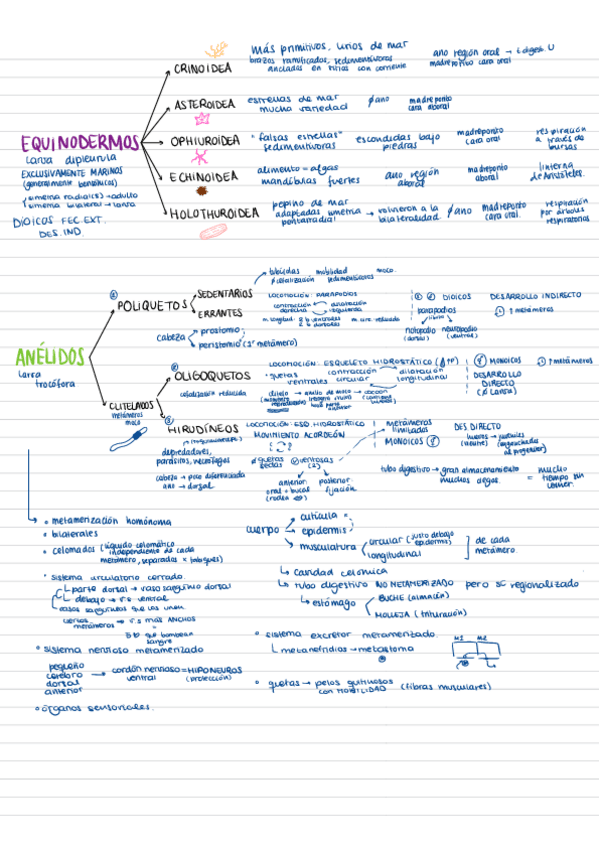 más primitivos, lirios de mar
brazos ramificados, sedimentívoros
anclados en rocas con corriente
ano región oral → t.digest. U
madreporito cara oral
CRINOIDEA
ASTEROIDEA
estrellas de mar
mucha variedad
∅ano
madreporito
cara aboral
EQUINODERMOS
larva dipleurula
EXCLUSIVAMENTE MARINOS
(generalmente bentónicos)
simetría radial(5) → adulto
simetría bilateral → larva
DIOICOS FEC. EXT.
DES. IND.
OPHIUROIDEA
"falsas estrellas"
sedimentívoras
escondidas bajo
piedras
madreporito
cara oral
respiración
a través de
bursas
ECHINOIDEA
alimento = algas
mandíbulas fuertes
ano región
aboral
madreporito
aboral
linterna
de Aristóteles
HOLOTHUROIDEA
pepino de mar
adaptadas simetría
pentarradial
→ volvieron a la
bilateralidad
∅ano
madreporito
cara oral
respiración
por árboles
respiratorios
ANÉLIDOS
larva
trocófora
POLIQUETOS
SEDENTARIOS
ERRANTES
tubícolas mobilidad moco
sedimentívoros
LOCOMOCIÓN: PARAPODIOS
contracción derecha
dilatación izquierda
DIOICOS
DESARROLLO INDIRECTO
↑ metámeros
parapodios
notopodio (dorsal)
neuropodio (ventral)
cabeza
prostomio;
peristomio (1er metámero)
CLITELADOS
metámeros
moco
OLIGOQUETOS
cefalización reducida
LOCOMOCIÓN: ESQUELETO HIDROSTÁTICO
quetas
ventrales
contracción
circular
→ dilatación
longitudinal
MONOICOS
↑ metámeros
DESARROLLO
DIRECTO
(∅ larva)
clitelo → anillo de moco → cocoon
HIRUDÍNEOS
depredadores,
parásitos, necrófagos
cabeza → poco diferenciada
ano → dorsal
LOCOMOCIÓN: ESQ. HIDROSTÁTICO
MOVIMIENTO ACORDEÓN
∅ quetas
ventosas
(2)
anterior
oral + bucal
posterior
fijación
metámeros
limitados
MONOICOS
DES DIRECTO
tubo digestivo → gran almacenamiento
muchos ciegos
= mucho
tiempo sin
comer.
• metamerización homónoma
• bilaterales
• celomados (líquido celomático
independiente de cada
metámero, separados x tabiques)
cuerpo
cutícula
epidermis
musculatura
circular (justo debajo
epidermis)
longitudinal
de cada
metámero.
↳ cavidad celómica
↳ tubo digestivo NO METAMERIZADO pero SÍ regionalizado
↳ estómago
BUCHE (almacén)
MOLLEJA (trituración)
• sistema circulatorio cerrado.
parte dorsal → vaso sanguíneo dorsal
debajo → v.s ventral
vasos sanguíneos que los unen
ciertos
metámeros → v.s más ANCHOS
que bombean
sangre
• sistema nervioso metamerizado
pequeño
cerebro
dorsal
anterior
→ cordón nervioso = HIPONEUROS
ventral (protección)
• sistema excretor metamerizado.
↳ metanefridios → metastoma
M1 M2
• quetas → pelos quitinosos
con MOBILIDAD (fibras musculares)
• órganos sensoriales.